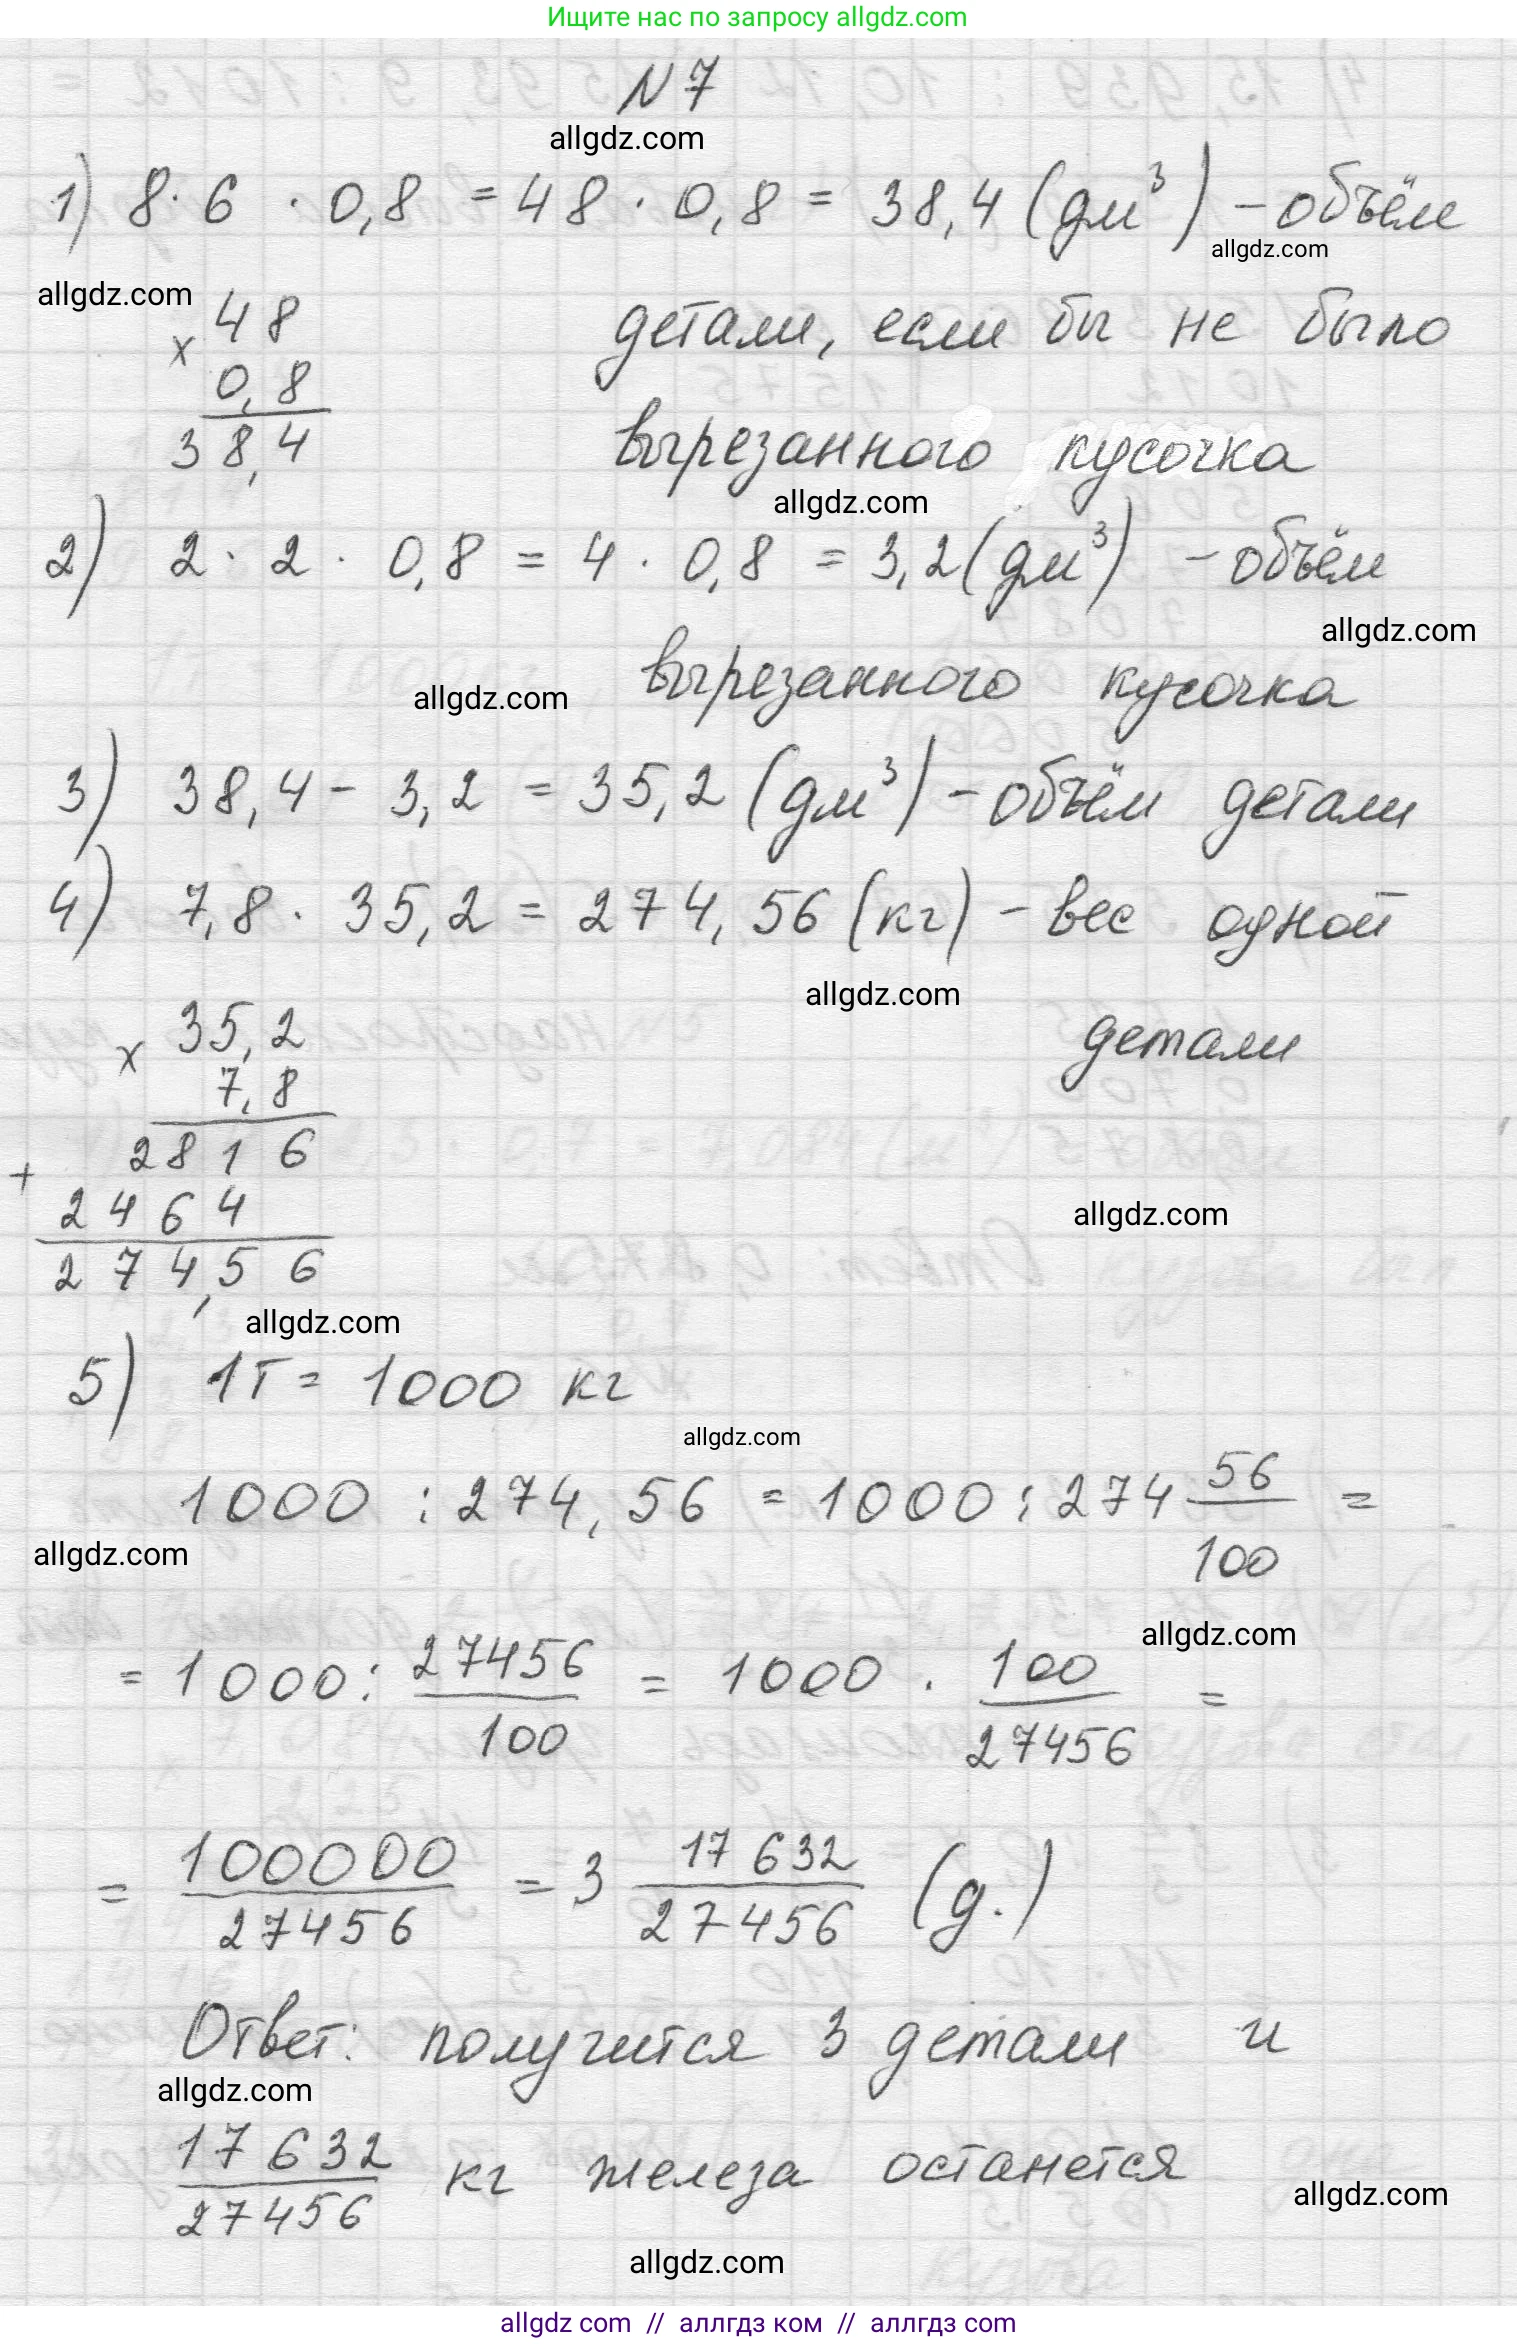 Ищите нас по запросу allgdz.com
N 7
allgdz.com
1) 8 · 6 · 0,8 = 48 · 0,8 = 38,4 (дм³) – объём
allgdz.com
allgdz.com
48 детали, если бы не было
× 0,8
38,4 вырезанного кусочка
allgdz.com
2) 2 · 2 · 0,8 = 4 · 0,8 = 3,2 (дм³) – объём
allgdz.com
вырезанного кусочка
allgdz.com
3) 38,4 – 3,2 = 35,2 (дм³) – объём детали
4) 7,8 · 35,2 = 274,56 (кг) – вес одной
allgdz.com
× 35,2 детали
7,8
2816
+ 2464
allgdz.com
274,56
allgdz.com
5) 1т = 1000 кг
allgdz.com
1000 : 274,56 = 1000 : 274 56/100 =
allgdz.com
allgdz.com
= 1000 : 27456/100 = 1000 · 100/27456 =
= 100000/27456 = 3 17632/27456 (д.)
Ответ: получится 3 детали и
allgdz.com
17632/27456 кг железа останется
allgdz.com
allgdz.com
allgdz.com // аллгдз ком // аллгдз.com